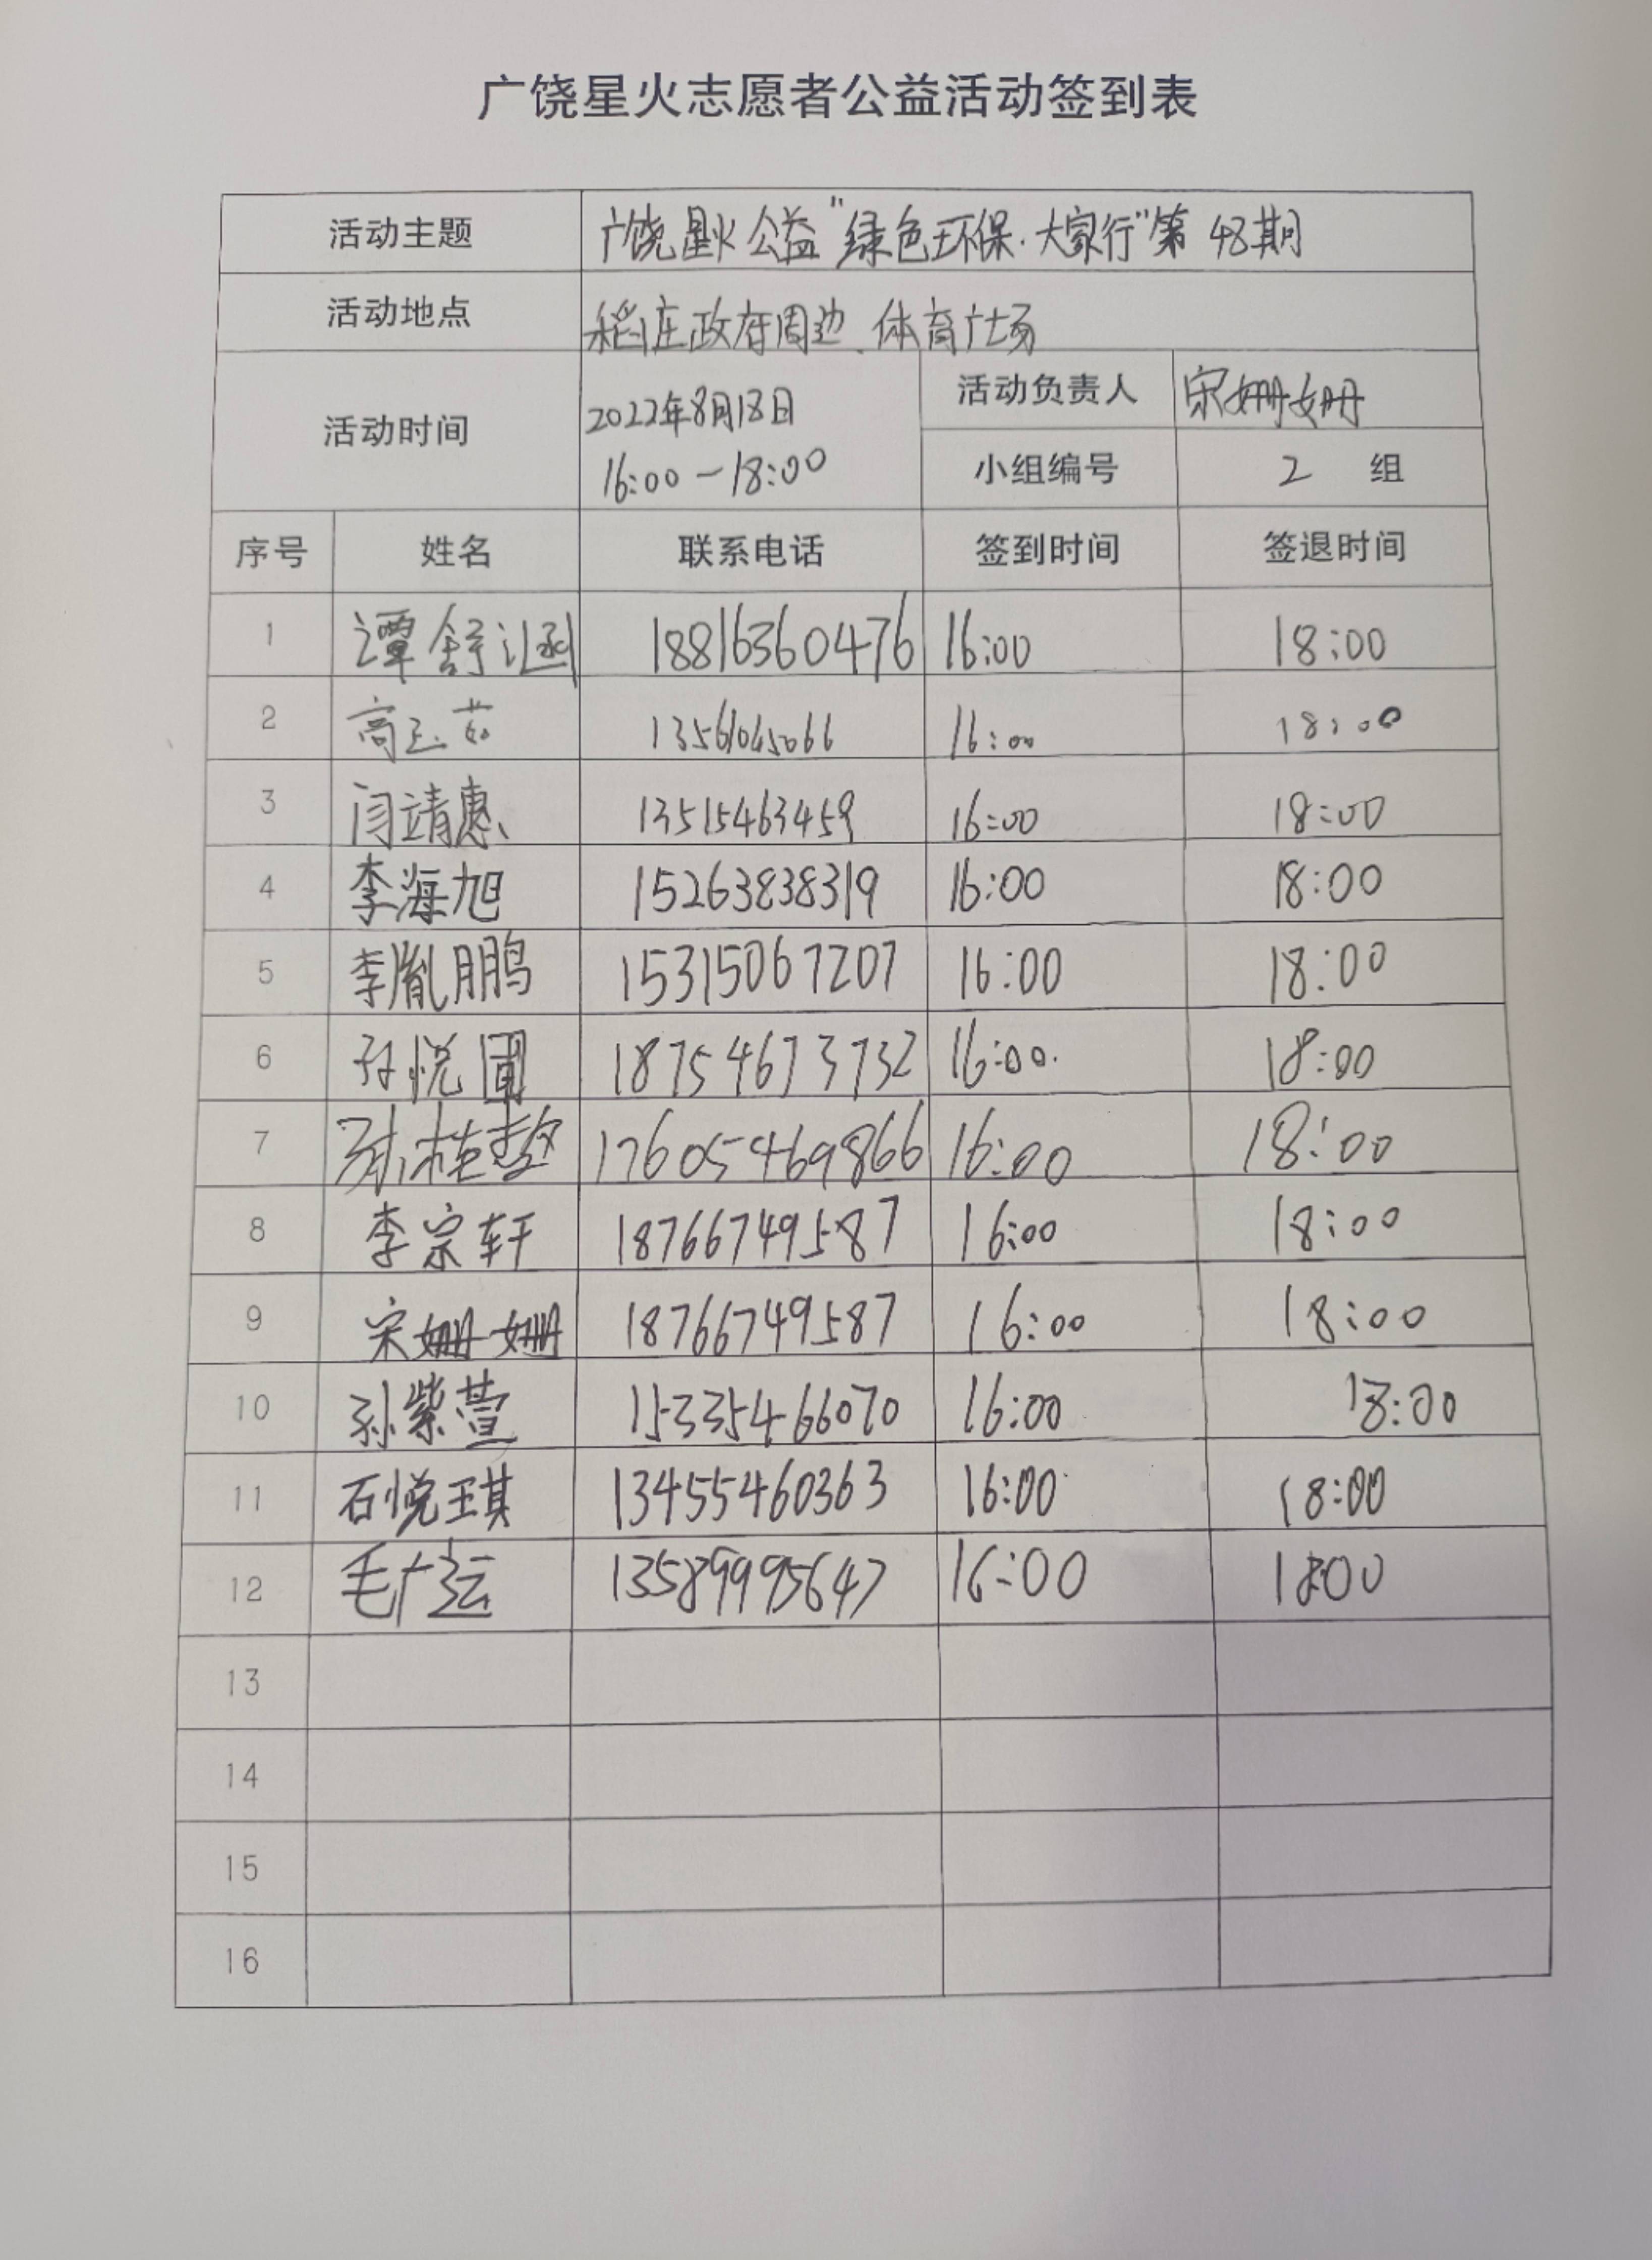 广饶星火志愿者公益活动签到表
活动主题 广饶星火公益"绿色环保·大家行"第48期
活动地点 稻庄政府周边、体育广场
活动时间 2022年8月18日 16:00-18:00
活动负责人 宋姗姗
小组编号 2 组
序号 姓名 联系电话 签到时间 签退时间
1 谭舒涵 18816360476 16:00 18:00
2 高 茹 13561045066 16:00 18:00
3 闫靖惠 13515463459 16:00 18:00
4 李海旭 15263838319 16:00 18:00
5 李胤鹏 15315067207 16:00 18:00
6 孙悦 18754673732 16:00 18:00
7 17605469866 16:00 18:00
8 李宗轩 18766749587 16:00 18:00
9 宋姗姗 18766749587 16:00 18:00
10 孙紫萱 15335466070 16:00 18:00
11 石悦琪 13455460363 16:00 18:00
12 毛广运 13589995647 16:00 18:00
13
14
15
16